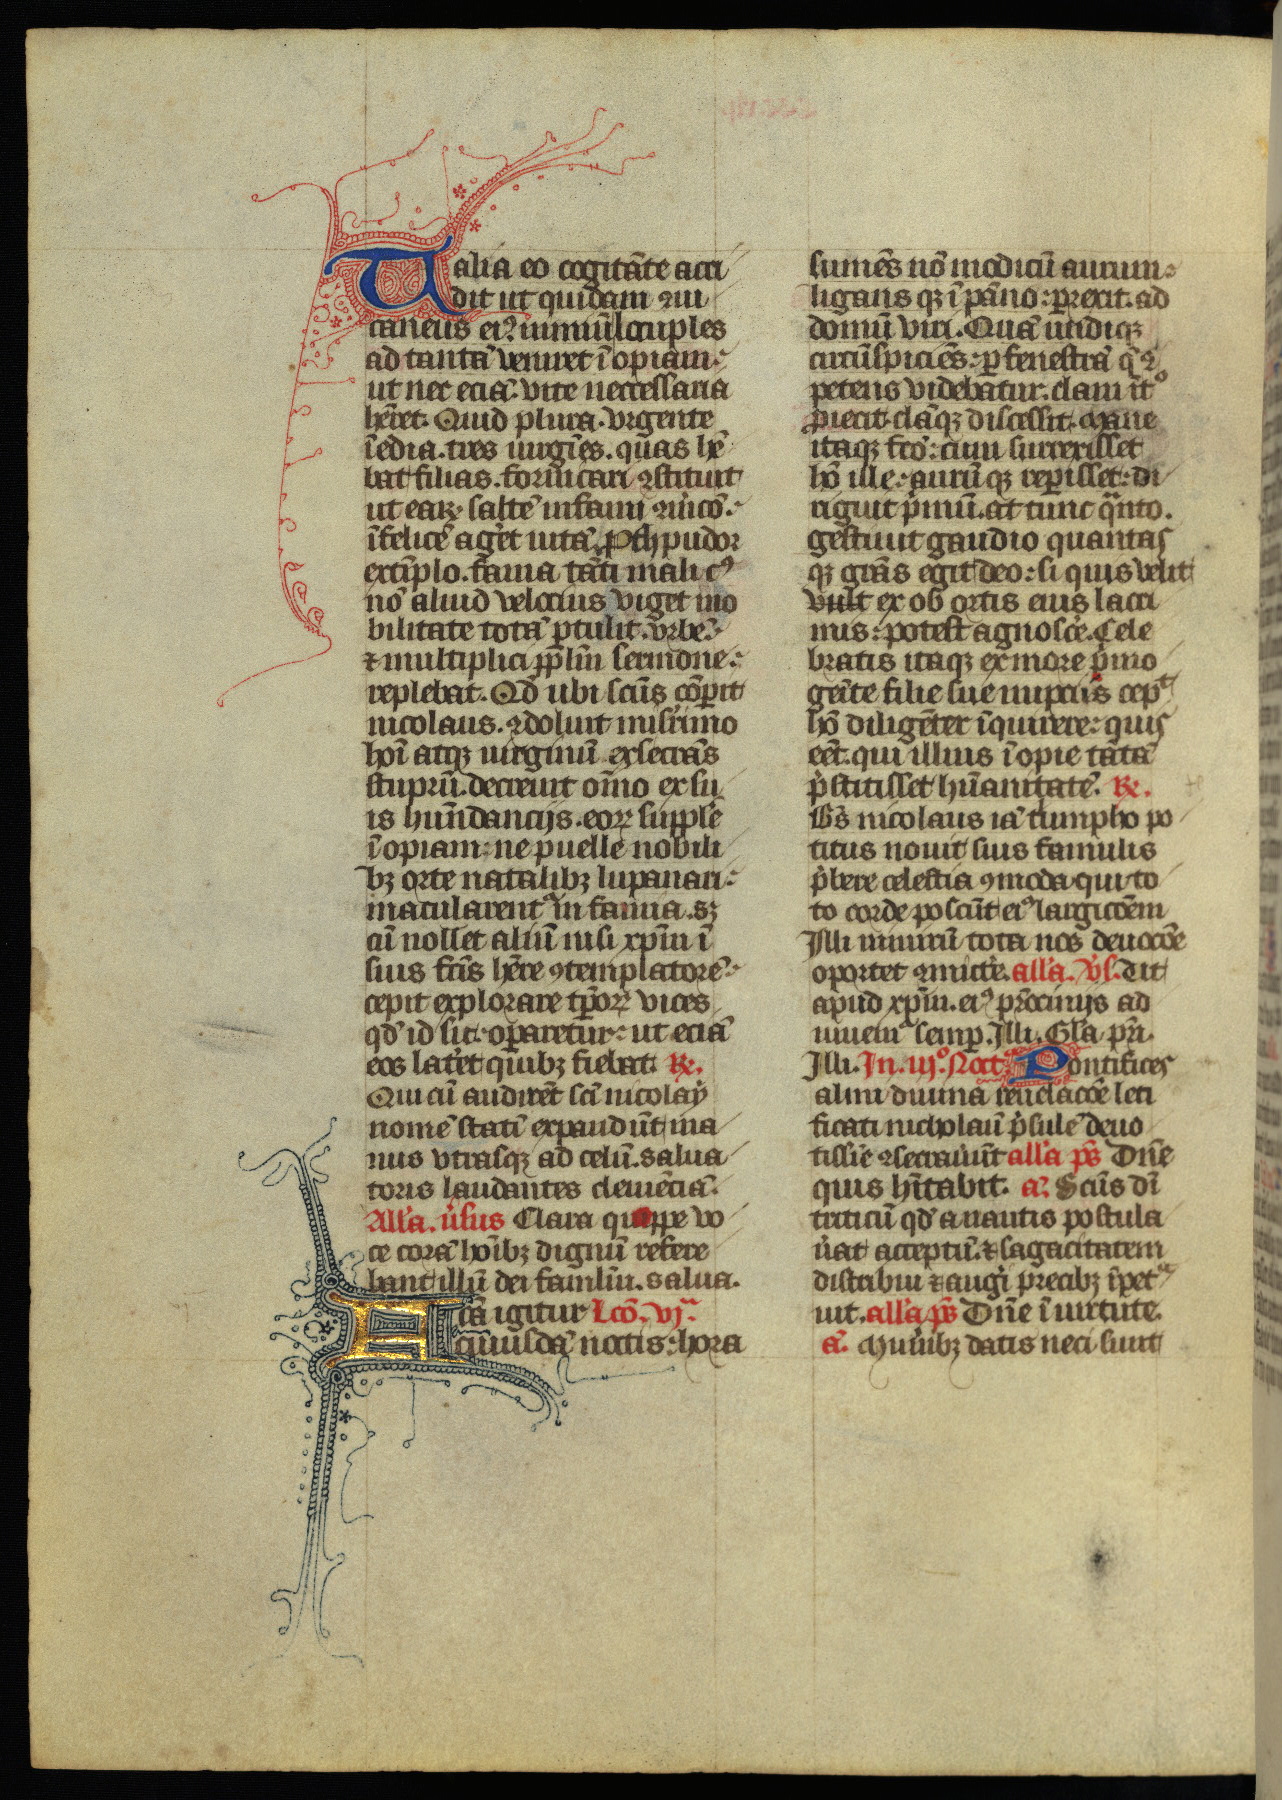 Talia eo cogitāte acci
dit ut quidam ꝯui
caneus eiꝰ nimiūlocuples
ad tantā veniret īopiam:
ut nec eciā. vite necessaria
hēret. Quid plura. vrgente
īedia. tres uirgīēs. quas hē
bat filias. fornicari ꝯstituit
ut eaꝝ. saltē infami ꝯm̄cō.
īfelicē agēt uitā. Proh pudor
extīplo. fama tāti mali cꝰ
nō aliud velocius viget mo
bilitate totā ꝑtulit. vrbē.
⁊ multiplici pp̄lm̄ sermone.
replebat. Qd̄ ubi scūs cōperit
nicolaus. ꝯdoluit misērimo
hoī atqꝫ uirginū exsecrās
stuprū. decreuit om̄o ex su
is hūndancijs. eoꝝ supplē
īopiam: ne puelle nobili
bꝫ orte natalibꝫ lupanari.
macularent᷑ in famia. sꝫ
cū nollet aliū nisi xp̄m ī
suis fc̄is hēre ꝯtemplatorē.
cepit explorare tp̄oꝝ vices
qd̄ id sic. oꝑaretur: ut eciā
eos latēt quibꝫ fiebat. ℟.
Qui cū audirēt scī nicolaẏ
nomē statī expandūt ma
nus vtrasqꝫ ad celū. salua
toris laudantes clemēciā.
Alła. v̄sus Clara quippe vo
ce corā hoībꝫ dignū refere
bant illū dei famlm̄. salua.
Eā igitur Lcō. vjᵃ
cuiusdā noctis: hora
sumēs nō modicū aurum:
ligans qꝫ ī pāno: ꝑrexit. ad
domū viri. Quā undiqꝫ
circūspiciēs: ꝑ fenestrā q̄ ꝯ
petens videbatur. clam īt°
ꝓiecit clāqꝫ discessit. Mane
itaqꝫ fc̄o: cum surrexisset
hō ille: aurū qꝫ reꝑisset: di
riguit pͥmū. at tunc qᵃnto.
gestiuit gaudio quantas
qꝫ grās egit deo: si quis velit
vult ex ob ortis eius lacri
mis: potest agnoscē. Cele
bratis itaqꝫ ex more pͥmo
genite filie sue nuptijs cepᵗ
hō diligēter īquirere: quis
eēt. qui illius īopie tātā
p̄stitisset hūanitatē. ℟.
Bs̄ nicolaus iā triumpho po
titus nouit suis famulis
p̄bere celestia ꝯmoda qui to
to corde poscūt eiꝰ largicōem
Illi nimirū tota nos deuocōe
oportet ꝯmictē. alła. v̄s. Vt
apud xp̄m. eiꝰ pr̄ocinijs ad
iuuem᷑ semꝑ. Illi. Gła. pr̄i.
Illi. In. iijº. Noct Pontifices
almi diuina reuelacōe leti
ficati nicholaū p̄sulē deuo
tissīe ꝯsecrauūt alła ps̄ Dn̄e
quis hītabit. a᷑. Scūs dī
triticū qd̄ a nautis postula
ūat acceptū. ⁊ sagacitatem
distribui ⁊ augī precibꝫ īpetᵃ
uit. alła. ps̄ Dn̄e ī uirtute.
a᷑. Muīibꝫ datis neci sunt